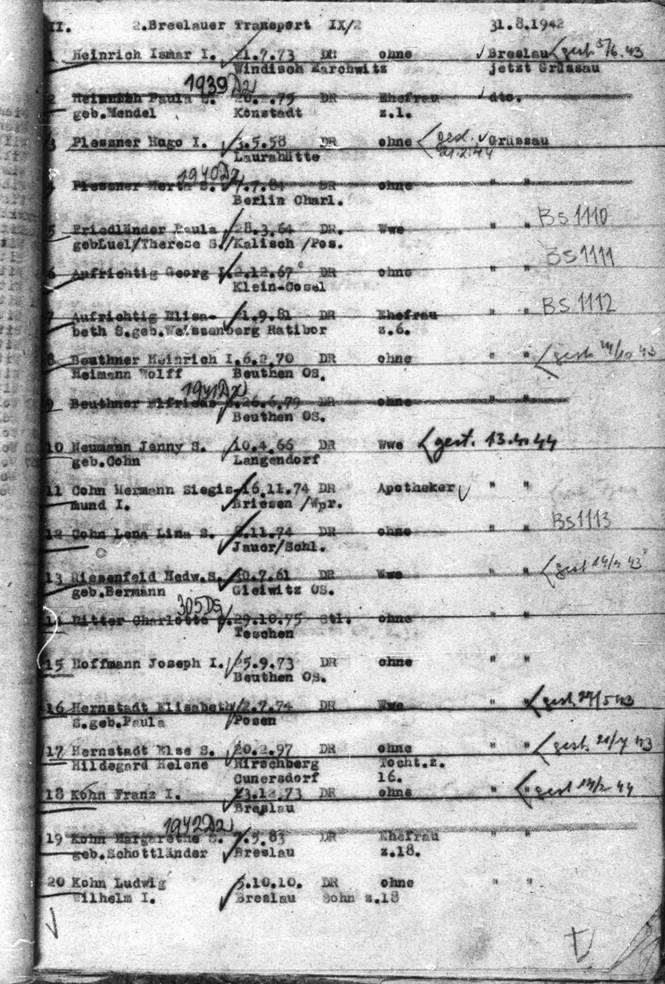 II. 2.Breslauer Transport IX/2 31.8.1942
1 Heinrich Ismar I. 21.7.73 DR ohne Breslau gest. 5/6.43
Windisch Marchwitz jetzt Grüssau
1939 Da
2 Heinrich Paula S. .75 DR Ehefrau dto.
geb.Mendel Konstadt z.1.
3 Plessner Hugo I. 3.5.58 DR ohne gest. Grüssau
Laurahütte 21.2.44
1940 Da
4 Plessner Herta S. 7.7.84 DR ohne " "
Berlin Charl.
5 Friedländer Paula 28.3.64 DR. Wwe " " BS1110
geb.Luel/Therese S. Kalisch /Pos.
6 Aufrichtig Georg I. 2.12.67 DR ohne " " BS1111
Klein-Cosel
7 Aufrichtig Elisa- 1.9.81 DR Ehefrau " " BS1112
beth S.geb.Weissenberg Ratibor z.6.
8 Beuthner Heinrich I. 6.2.70 DR ohne " " gest. 43
Heimann Wolff Beuthen OS.
1941
9 Beuthner Elfriede S. 26.6.79 DR ohne " "
Beuthen OS.
10 Neumann Jenny S. 10.4.66 DR Wwe gest. 13. 44 " "
geb.Cohn Langendorf
11 Cohn Hermann Siegis- 16.11.74 DR Apotheker " "
mund I. Briesen /Wpr.
12 Cohn Lena Lina S. .11.74 DR ohne " " BS1113
Jauer/Schl.
13 Riesenfeld Hedw.S. 30.7.61 DR Wwe " " gest 43
geb.Bermann Gleiwitz OS.
305 Ds
14 Ritter Charlotte S. 29.10.75 Stl. ohne " "
Teschen
15 Hoffmann Joseph I. 25.9.73 DR ohne " "
Beuthen OS.
16 Hernstadt Elisabeth 2.7.74 DR Wwe " " gest. 27/5 43
S.geb.Paula Posen
17 Hernstadt Else S. 20.2.97 DR ohne " " gest. 43
Hildegard Helene Hirschberg Tocht.z.
Cunersdorf 16.
18 Kohn Franz I. 23.12.73 DR ohne " " gest 44
Breslau
1942 Da
19 Kohn Margarethe S. 7.5.83 DR Ehefrau " "
geb.Schottländer Breslau z.18.
20 Kohn Ludwig 5.10.10. DR ohne " "
Wilhelm I. Breslau Sohn z.18